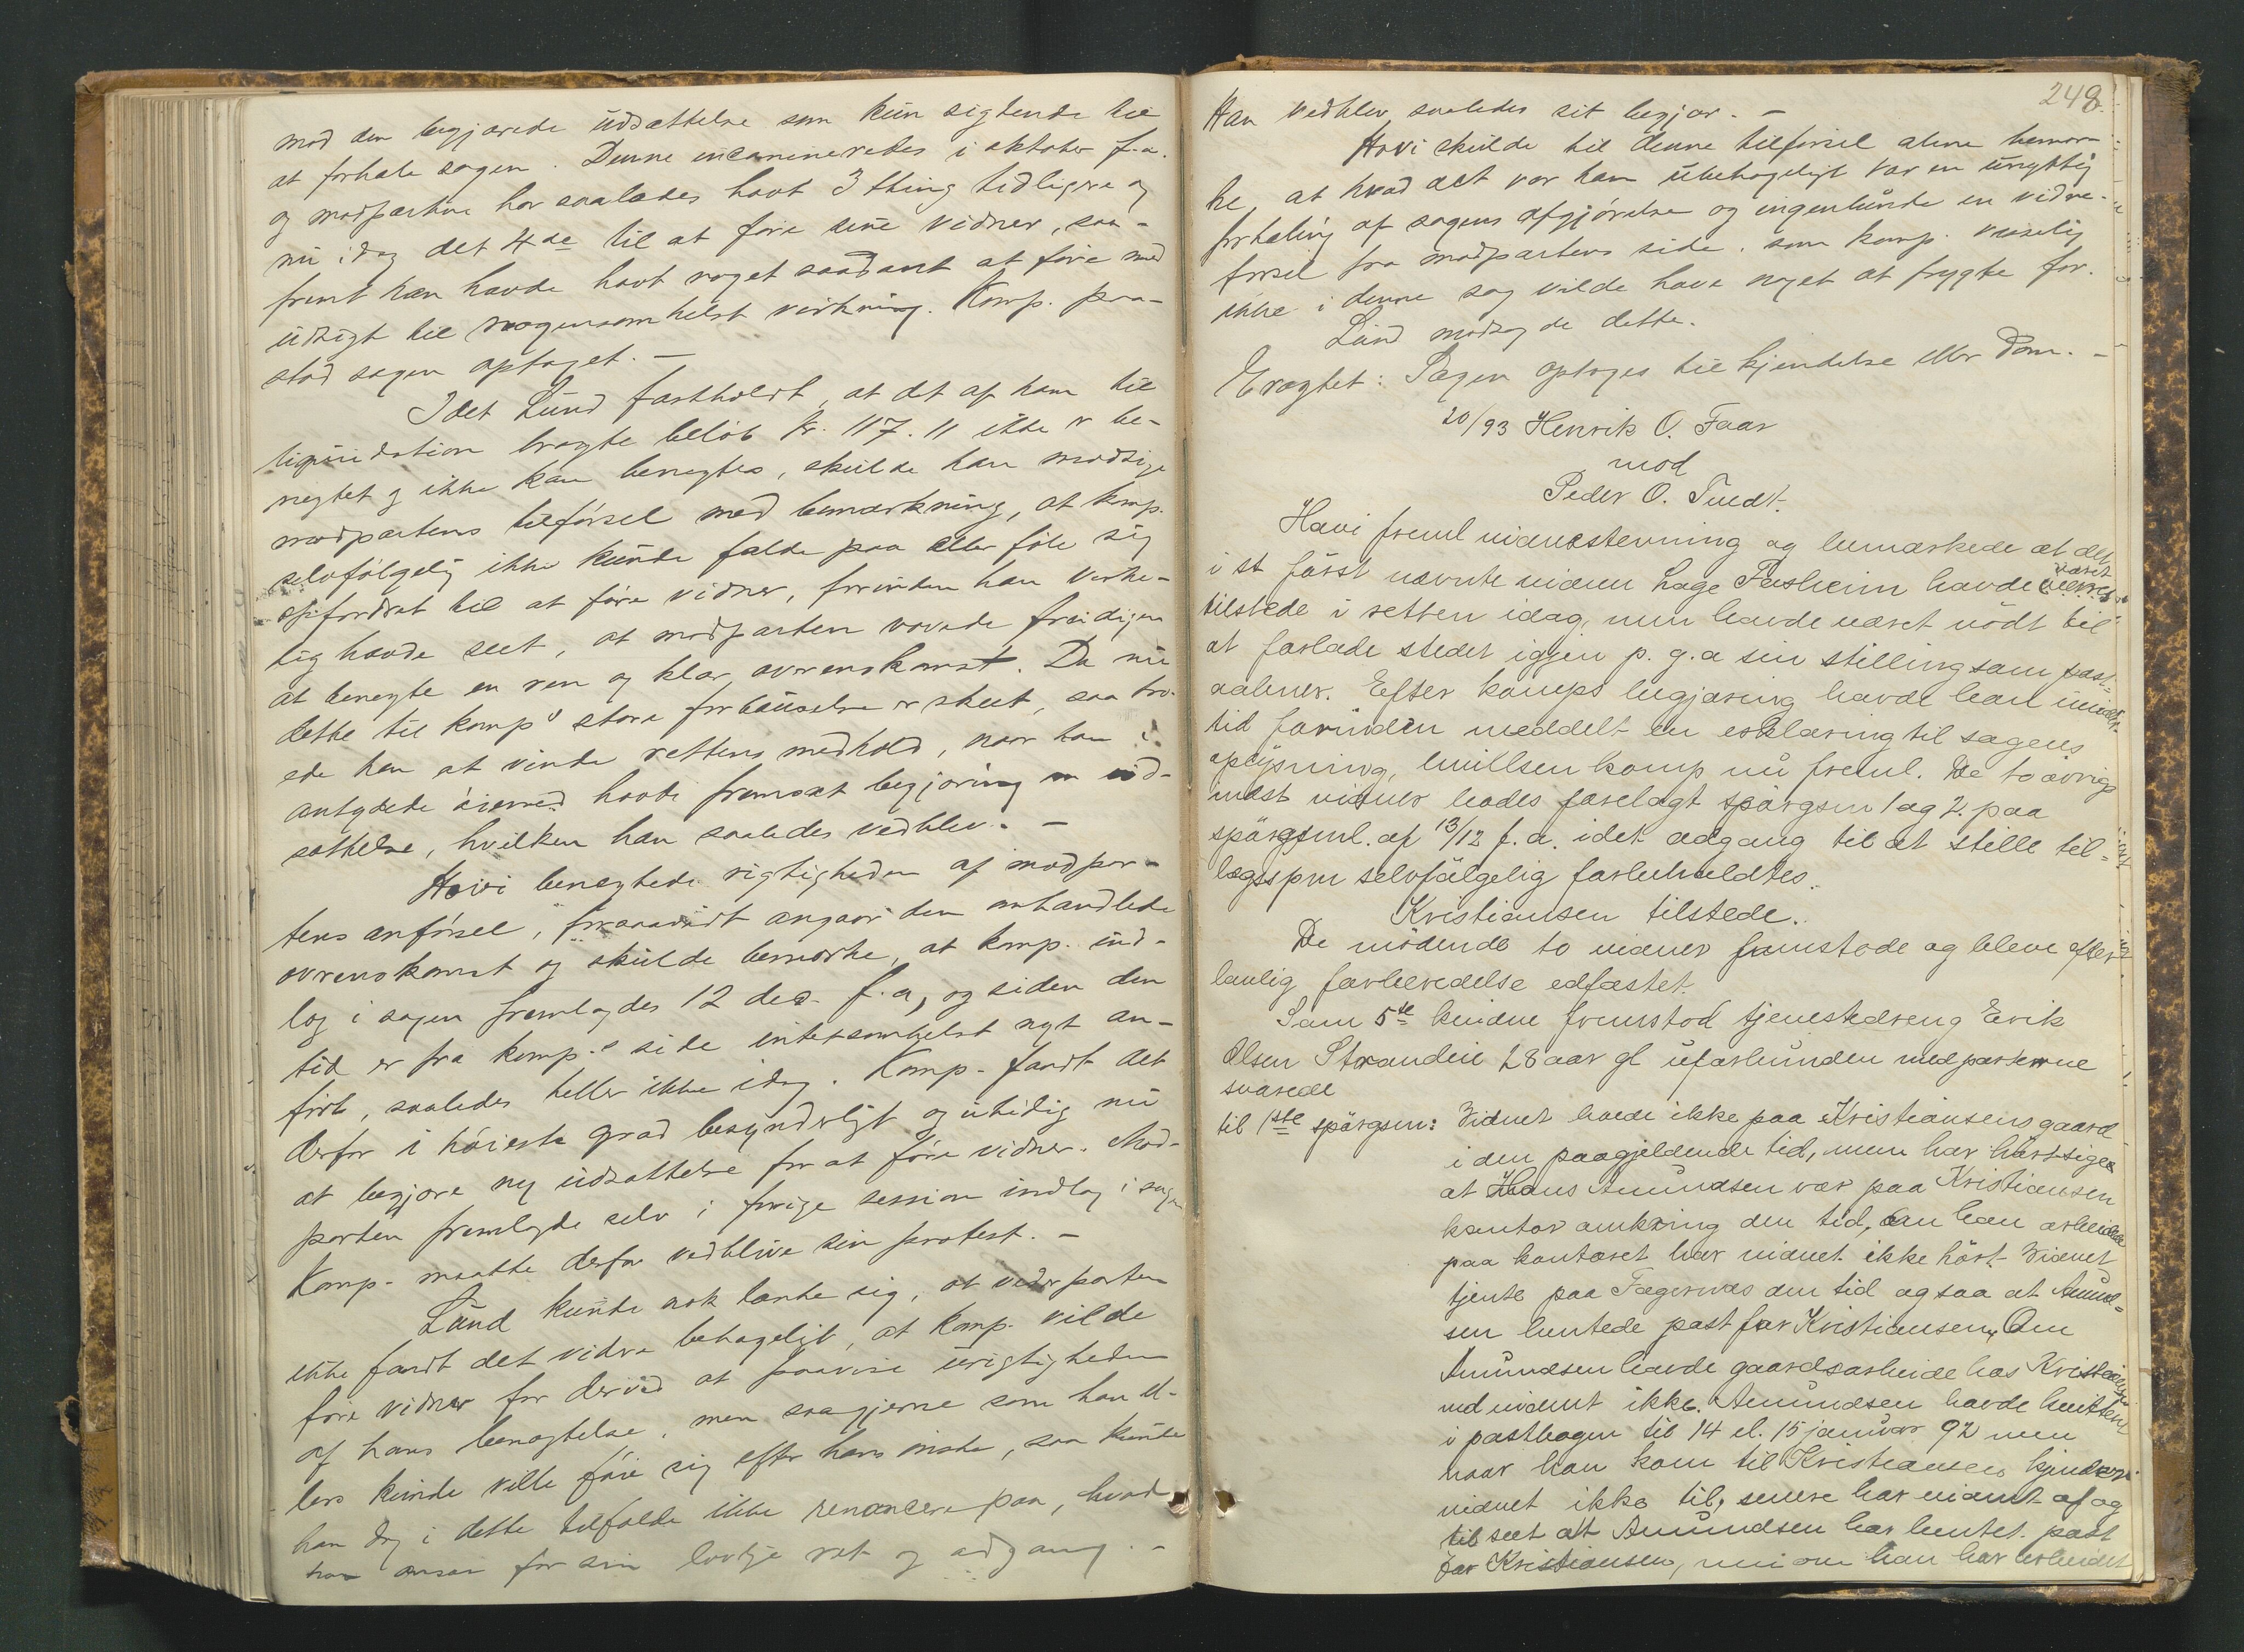 mod den begjærede udsættelse som kun sigtende til
at forhale sagen. Denne incamineredes i oktober f.a.
og modparten har saaledes havt 3 thing tidligere og
nu idag det 4de til at føre sine vidner, saa-
fremt han havde havt noget saadant at føre med
udsigt til nogensomhelst virkning. Komp. paa-
stod sagen optaget. —
Idet Lund fastholdt, at det af ham til
liquidation bragte beløb kr. 117.11 ikke er be-
negtet og ikke kan benegtes, skulde han modsige
modpartens tilførsel med bemærkning, at komp.
selvfølgelig ikke kunde falde paa eller føle sig
opfordret til at føre vidner, forinden han virke-
lig havde seet, at modparten vovede freidigen
at benegte en ren og klar overenskomst. Da nu
dette til komp's store forbauselse er skeet, saa tro-
ede han at vinde rettens medhold, naar han i
antydede øiemed havde fremsat begjæring om ud-
sættelse, hvilken han saaledes vedblev. —
Hovi benegtede rigtigheden af modpar-
tens anførsel, forsaavidt angaar den omhandlede
overenskomst og skulde bemærke, at komp. ind-
læg i sagen fremlagdes 12 des. f.a, og siden den
tid er fra komp.s side intetsomhelst nyt an-
ført, saaledes heller ikke idag. Komp. fandt det
derfor i høieste grad besynderligt og utidig nu
at begjære ny udsættelse for at føre vidner. Mod-
parten fremlagde selv i forrige session indlæg i sagen
Komp. maatte derfor vedblive sin protest. —
Lund kunde nok tænke sig, at vederparten
ikke fandt det videre behageligt, at komp. vilde
føre vidner for derved at paavise urigtigheden
af hans benegtelse, men saa gjerne som han el-
lers kunde ville føie sig efter hans ønske, saa kunde
han dog i dette tilfælde ikke renoncere paa, hvad
han anser for sin lovlige ret og adgang. —
248
Han vedblev saaledes sit begjær. —
Hovi skulde til denne tilførsel alene bemær-
ke, at hvad det var ham ubehageligt var en unyttig
forhaling af sagens afgjørelse og ingenlunde en vidne-
førsel fra modpartens side, som komp. visselig
ikke i denne sag vilde have noget at frygte for.
Lund modsagde dette.
Eragtet: Sagen optages til kjendelse eller Dom. —
20/93 Henrik O. Faar
mod
Peder O. Tuedt.
Hovi freml vidnestevning og bemærkede at det
i st først nævnte vidnen Lage Fasheim havde været
tilstede i retten idag, men havde været nødt til
at forlade stedet igjen p. g. a sin stilling som post-
aabner. Efter komps begjæring havde han imidler-
tid forinden meddelt en erklæring til sagens
oplysning, hvilken komp nu freml. De to øvrige
mødt vidner bades forelagt spørgsm 1 og 2 paa
spørgsml. af 13/12 f. a. idet adgang til at stille til-
lægsspm selvfølgelig forbeholdtes.
Kristiansen tilstede.
De mødende to vidner fremstode og bleve efter
lovlig forberedelse edfæstet.
Som 5te vidne fremstod tjenestedreng Erik
Olsen Strandeie 28 aar gl uforbunden med parterne
svarede
til 1ste spørgsm: Vidnet boede ikke paa Kristiansens gaard
i den paagjeldende tid, men har hørt sige
at Hans Amundsen var paa Kristiansen
kontor omkring den tid, om han arbeidede
paa kontoret har vidnet ikke hørt. Vidnet
tjente paa Fagernæs den tid og saa at Amund-
sen hentede post for Kristiansen. Om
Amundsen havde gaardsarbeide hos Kristiansen
ved vidnet ikke. Amundsen havde kvittert
i postbogen til 14 el. 15 januar 92 men
naar han kom til Kristiansen kjender
vidnet ikke til, senere har vidnet af og
til seet att Amundsen har hentet post
for Kristiansen, men om han har arbeidet